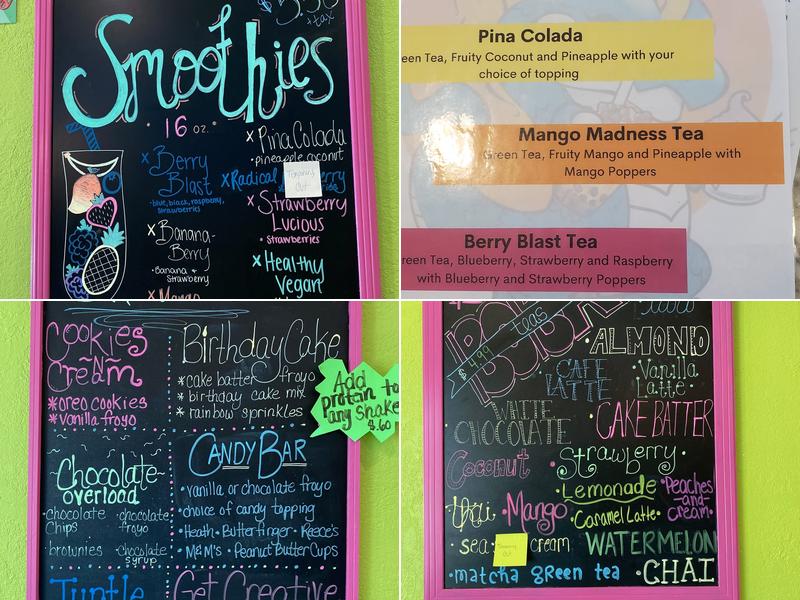 +tax
Smoothies
16 oz.
x Berry
Blast
-blue, black, raspberry,
strawberries
x Banana-
Berry
• Banana &
Strawberry
x Pina Colada
• pineapple, coconut
x Radical
Temporarily
Out
x Strawberry
Lucious
• strawberries
x Healthy
Vegan
Pina Colada
een Tea, Fruity Coconut and Pineapple with your
choice of topping
Mango Madness Tea
Green Tea, Fruity Mango and Pineapple with
Mango Poppers
Berry Blast Tea
reen Tea, Blueberry, Strawberry and Raspberry
with Blueberry and Strawberry Poppers
Cookies
~N~
Cream
*oreo cookies
*vanilla froyo
Birthday Cake
*cake batter froyo
*birthday cake mix
*rainbow sprinkles
Add
protein to
any shake
$.60
Chocolate
overload
•chocolate
chips
•chocolate
froyo
brownies
•chocolate
syrup
Candy Bar
•vanilla or chocolate froyo
•choice of candy topping
•Heath •Butterfinger •Reece's
•M&M's •Peanut Butter Cups
Turtle
Get Creative
teas
$4.99
•ALMOND
CAFE
LATTE
Vanilla
Latte•
•WHITE
CHOCOLATE
CAKE BATTER
Coconut
•Strawberry•
•Lemonade
•Peaches
-and-
Cream•
Mango
•Caramel Latte•
•sea
cream
WATERMELON
•matcha green tea
•CHAI